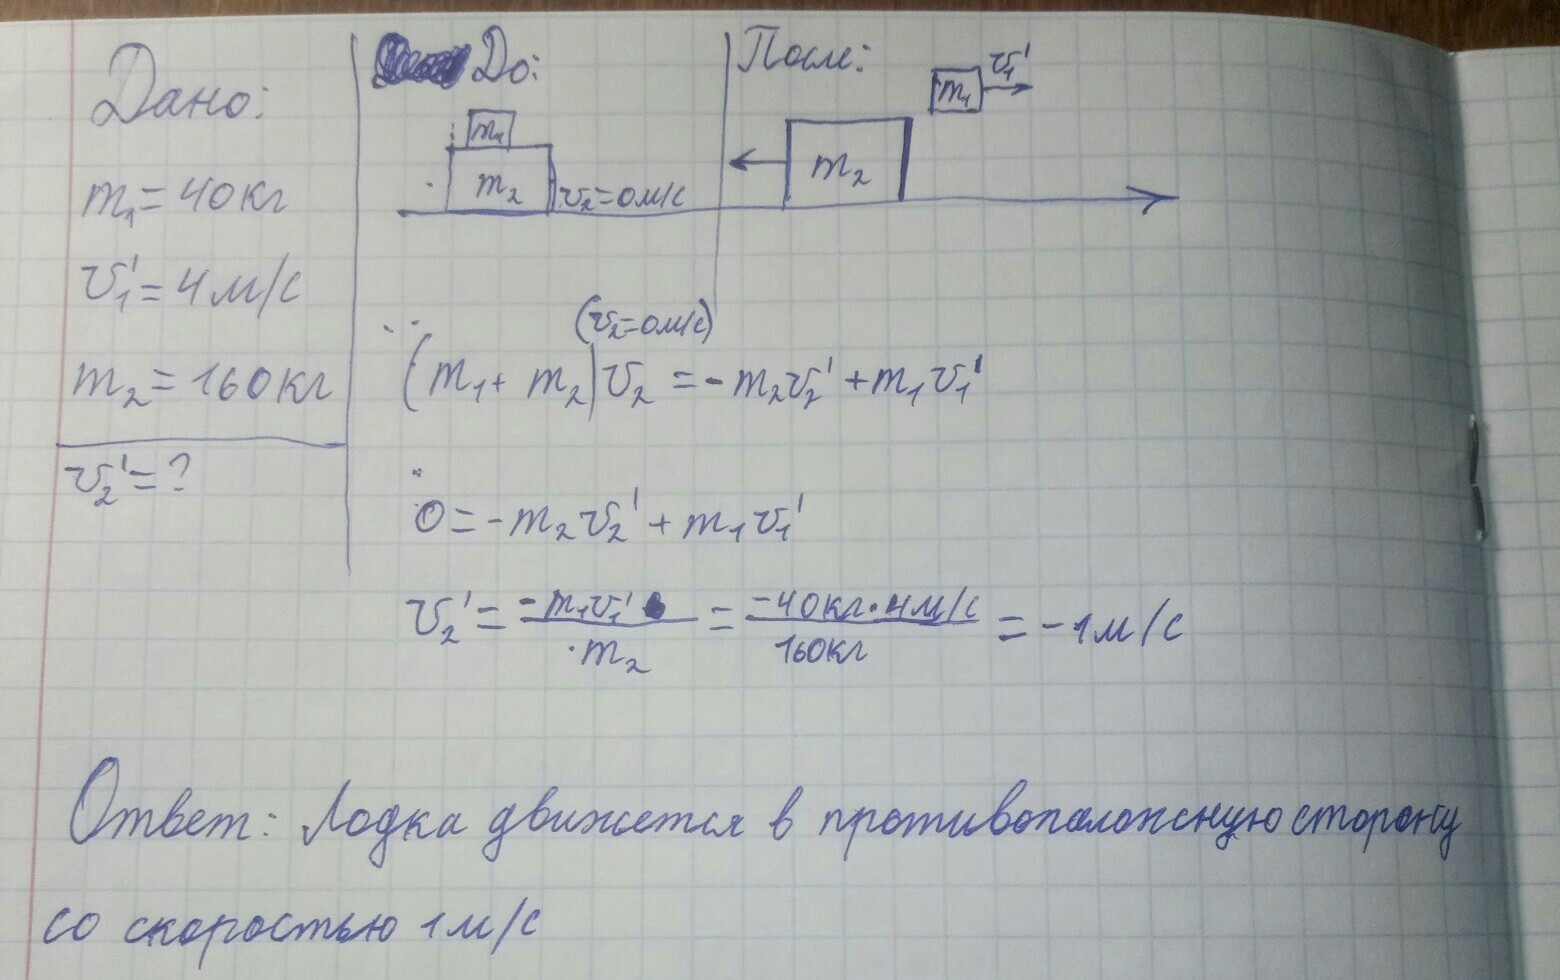 Дано:
m₁ = 40 кг
v₁' = 4 м/с
m₂ = 160 кг
v₂' = ?
До:
m₁
m₂
v₂ = 0 м/с
После:
m₂
m₁
v₁'
(v₂ = 0 м/с)
(m₁ + m₂) v₂ = - m₂v₂' + m₁v₁'
0 = - m₂v₂' + m₁v₁'
v₂' = -m₁v₁' / m₂ = -40 кг · 4 м/с / 160 кг = -1 м/с
Ответ: Лодка движется в противопаложную сторону
со скоростью 1 м/с